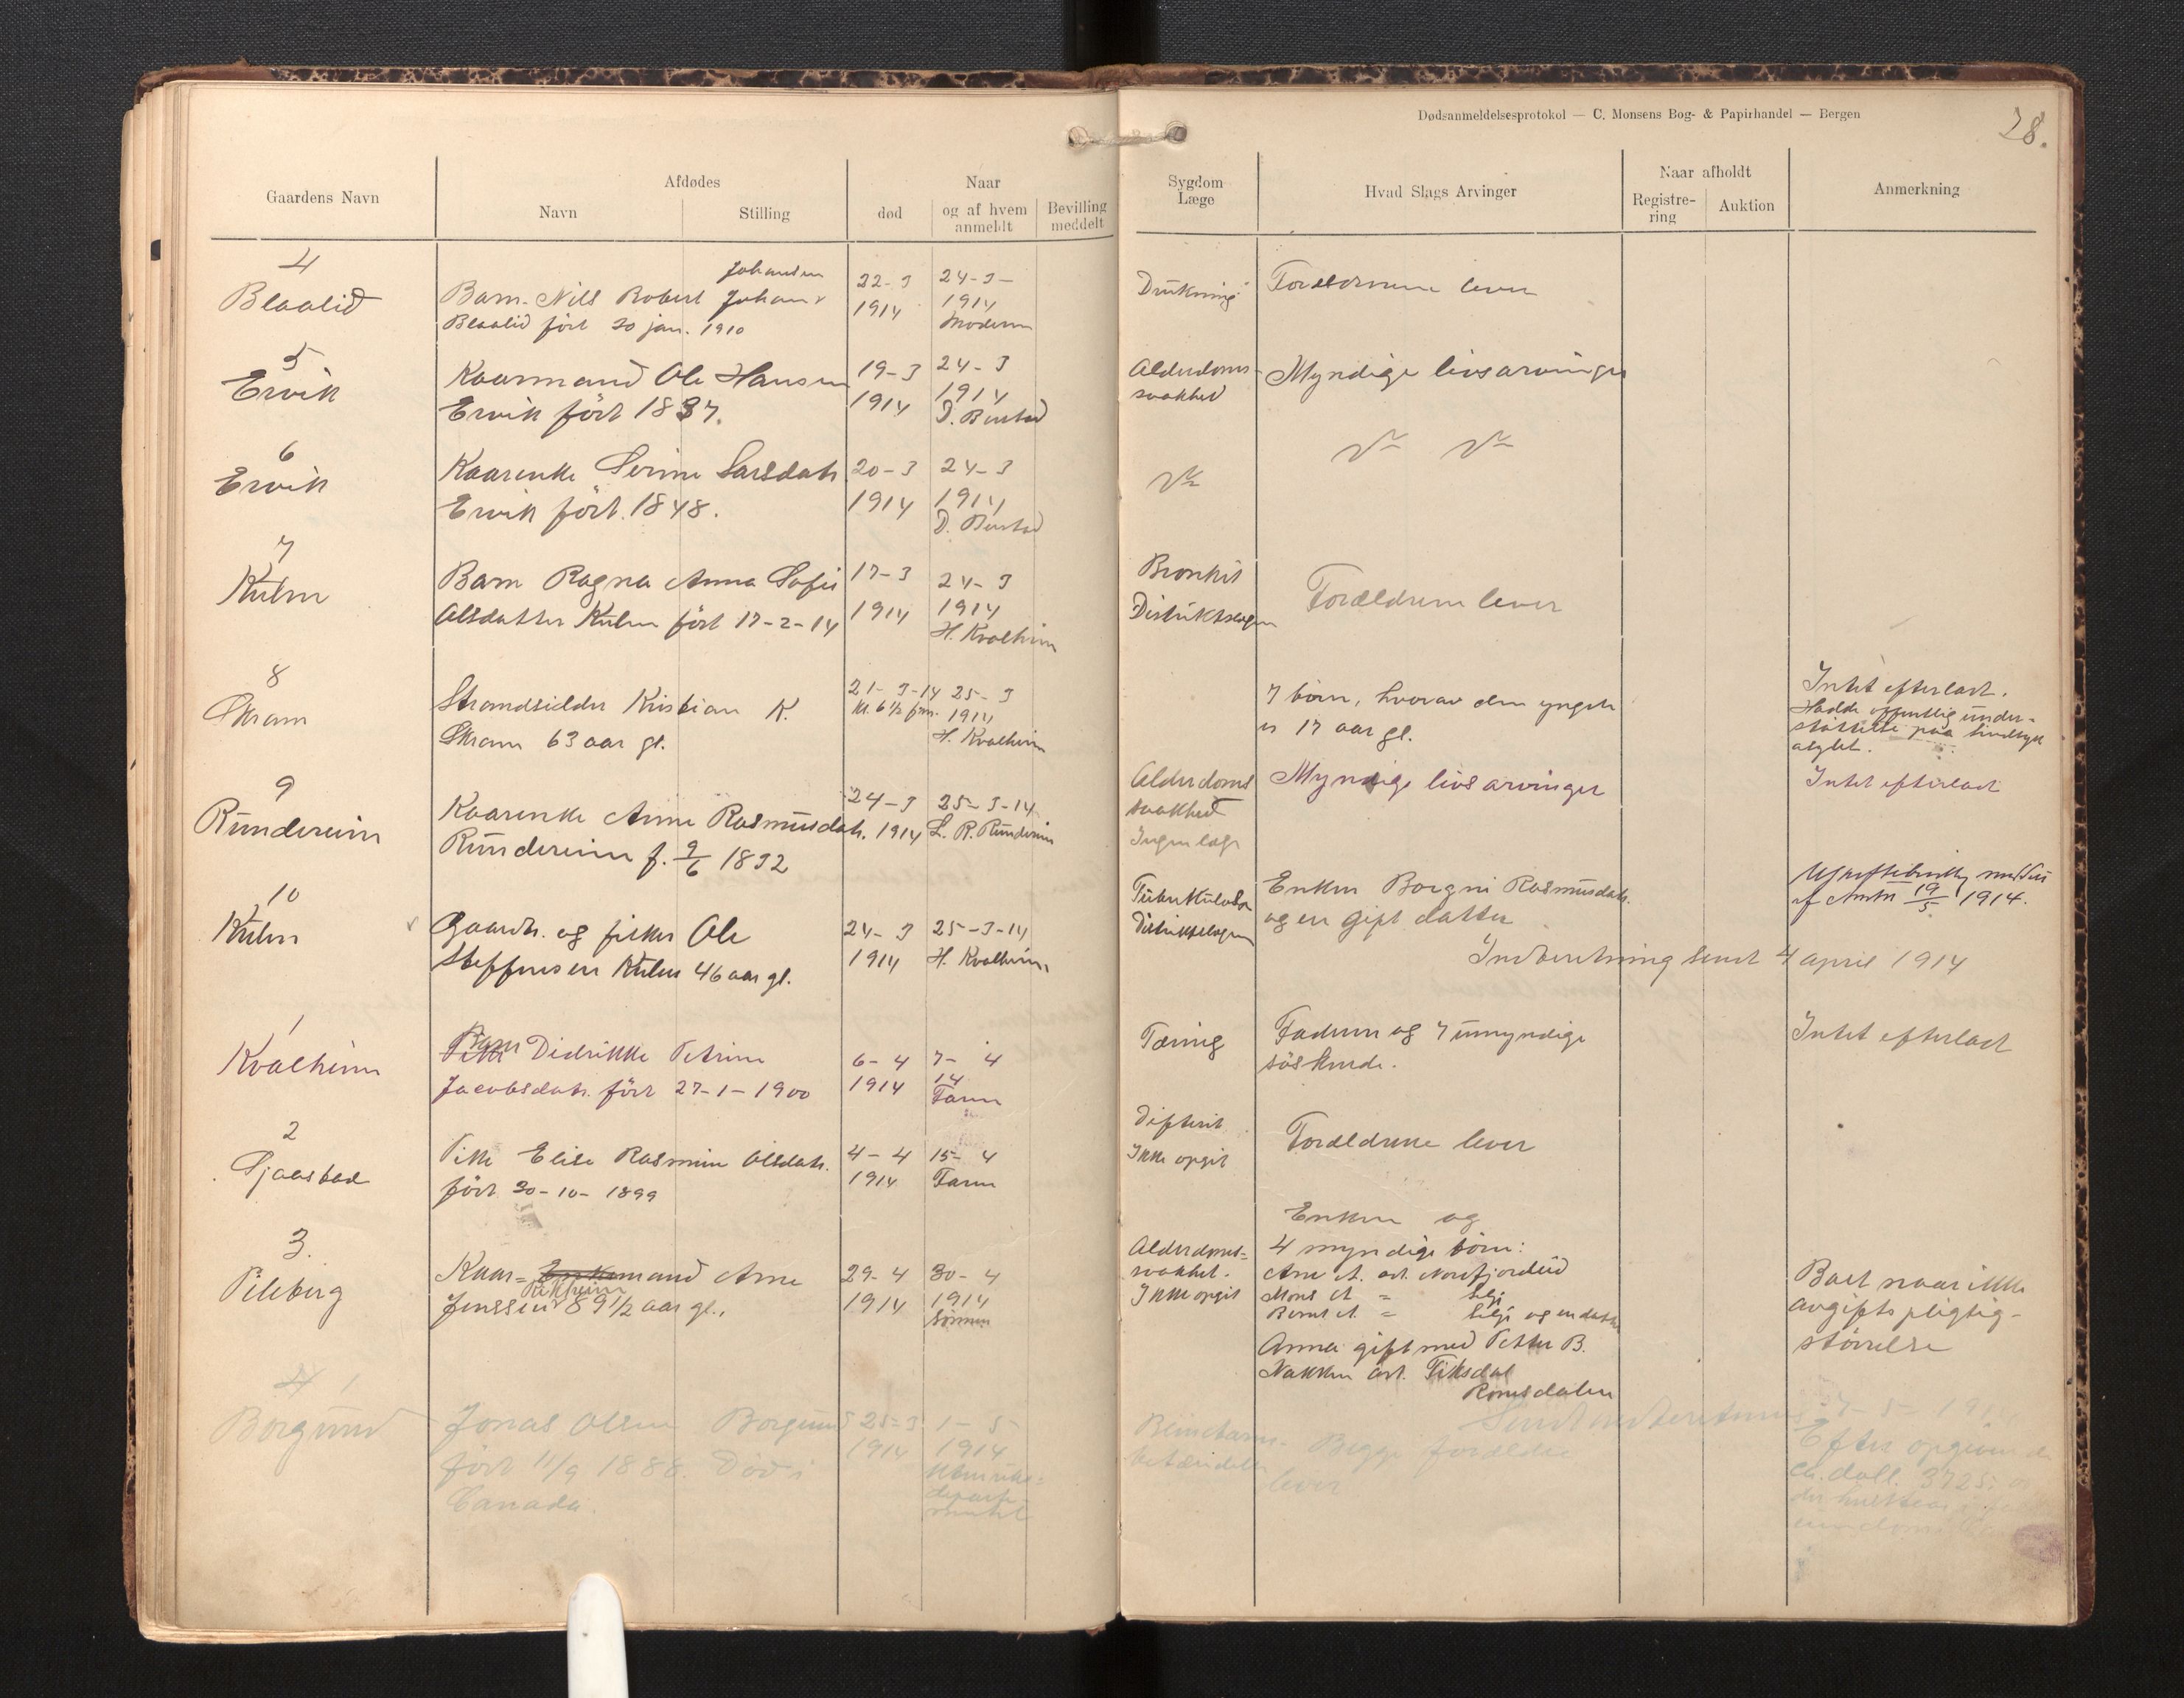 Dødsanmeldelsesprotokol — C. Monsens Bog- & Papirhandel — Bergen
28.
Gaardens Navn
Afdødes
Navn
Stilling
Naar
død
og af hvem anmeldt
Bevilling meddelt
Sygdom
Læge
Hvad Slags Arvinger
Naar afholdt
Registrering
Auktion
Anmerkning
4
Blaalid
Johansen
Barn. Nils Robert
Blaalid født 30 jan. 1910
22-3
1914
24-3-
1914
Moderen
Drukning
Forældrene lever
5
Ervik
Kaarmand Ole Hansen
Ervik født 1837.
19-3
1914
24-3
1914
D. Burstad
Alderdoms-
svakhed
Myndige livsarvinger
6
Ervik
Kaarenke Serine Larsdatr.
Ervik født. 1848.
20-3
1914
24-3
1914
D. Burstad
7
Kulm
Barn Ragna Anna Sofie
Olsdatter Kulm født 17-2-14
17-3
1914
24-3
1914
H. Kvalheim
Bronkit
Distriktslægen
Forældrene lever
8
Skram
Strandsidder Kristian K.
Skram 63 aar gl.
21-3-14
kl. 6 1/2 fm.
25-3
1914
H. Kvalheim
7 börn, hvorav den yngste
er 17 aar gl.
Intet efterladt.
Hadde offentlig under-
støttelse paa
9
Runderein
Kaarenke Anne Rasmusdatr.
Runderein f. 9/6 1832
24-3
1914
25-3-14
L. R. Runderein
Alderdoms
svakhed
Ingen læge
Myndige livsarvinger
Intet efterladt
10
Kulm
Gaardbr. og fisker Ole
Steffensen Kulm 46 aar gl.
24-3
1914
25-3-14
H. Kvalheim
Tuberkulose
Distriktslægen
Enken Borgni Rasmusdatr.
og en gift datter
Uskiftebevilling meddelt
af Amtm 19/5 1914.
Indberetning sendt 4 april 1914
1
Kvalheim
Barn Didrikke Petrine
Jacobsdatr. født 27-1-1900
6-4
1914
7-4
14
Faren
Tæring
Faderen og 7 umyndige
söskende.
Intet efterladt
2
Pike Elise Rasmine Olsdatr.
født 30-10-1899
4-4
1914
15-4
Faren
Difterit
Ikke opgit
Forældrene lever
3.
Pileberg
Kaar= mand Arne
Jenssen 89 1/2 aar gl.,
29-4
1914
30-4
1914
Sönnen
Alderdoms=
svakhet.
Ikke opgit
Enken og
4 myndige börn:
Arne A. adr. Nordfjordeid
Mons A = Selje
Bernt A. = Selje og en datter
Anna gift med Petter B.
Nakken adr. Fiksdal
Romsdalen
Boet naar ikke
avgiftspligtig-
störrelse
1
Borgund
Jonas Olsen Borgund
født 11/9 1888. Död i
Canada.
25-3
1914
1-5
1914
Utenriks=
departe-
mentet
Begge forældre
lever
Efter opgivende